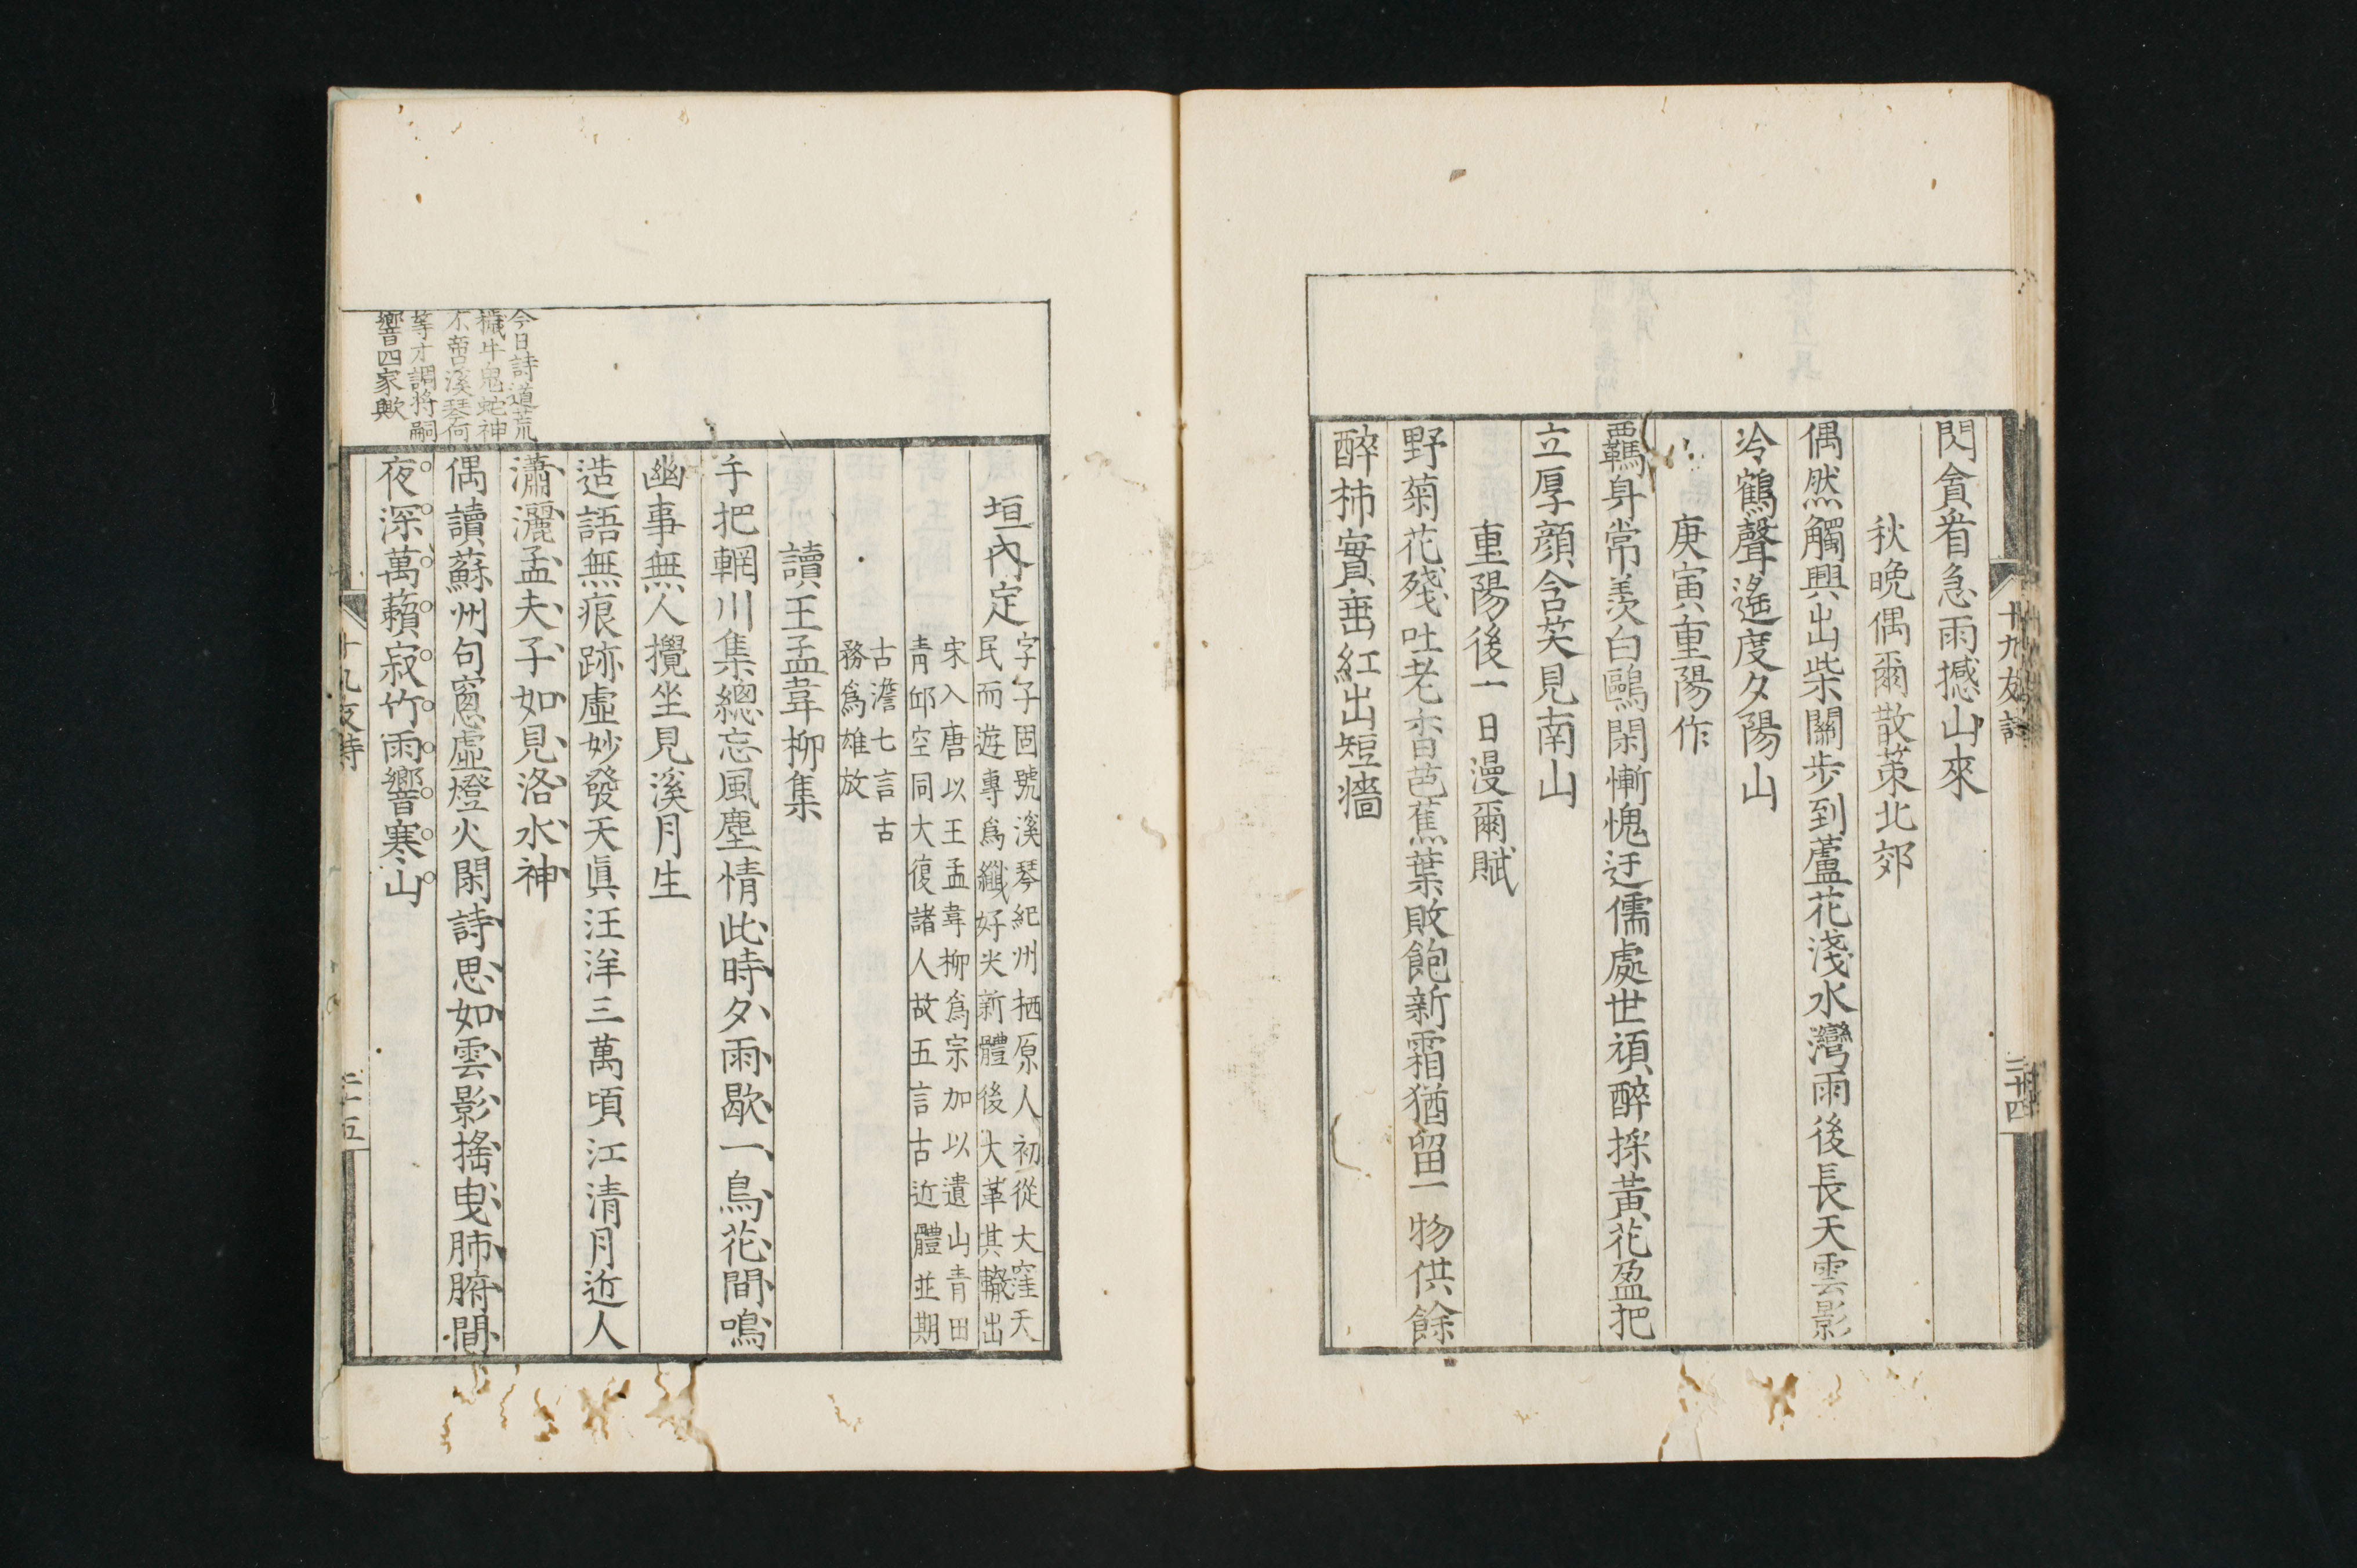 閃貪看急雨撼山來
秋晚偶爾散策北郊
偶然觸興出柴關步到蘆花淺水灣雨後長天雲影
冷鶴聲遙度夕陽山
庚寅重陽作
羈身常羨白鷗閑慚愧迂儒處世頑醉採黃花盈把
立厚顏含笑見南山
重陽後一日漫爾賦
野菊花殘吐老香芭蕉葉敗飽新霜猶留一物供餘
醉柿實垂紅出短牆
十九友詩
二十四
垣內定
字子固號溪琴紀州栖原人初從大窪天
民而遊專爲纖好尖新體後大革其轍出
宋入唐以王孟韋柳爲宗加以遺山青田
青邱空同大復諸人故五言古近體並期
古澹七言古
務爲雄放
讀王孟韋柳集
手把輞川集總忘風塵情此時夕雨歇一鳥花間鳴
幽事無人攪坐見溪月生
造語無痕跡虛妙發天眞汪洋三萬頃江清月近人
瀟灑孟夫子如見洛水神
偶讀蘇州句窻虛燈火閑詩思如雲影搖曳肺腑間
夜深萬籟寂竹雨響寒山
今日詩道荒
穢牛鬼蛇神
不啻溪琴何
等才調將嗣
響四家歟
十九友詩
二十五